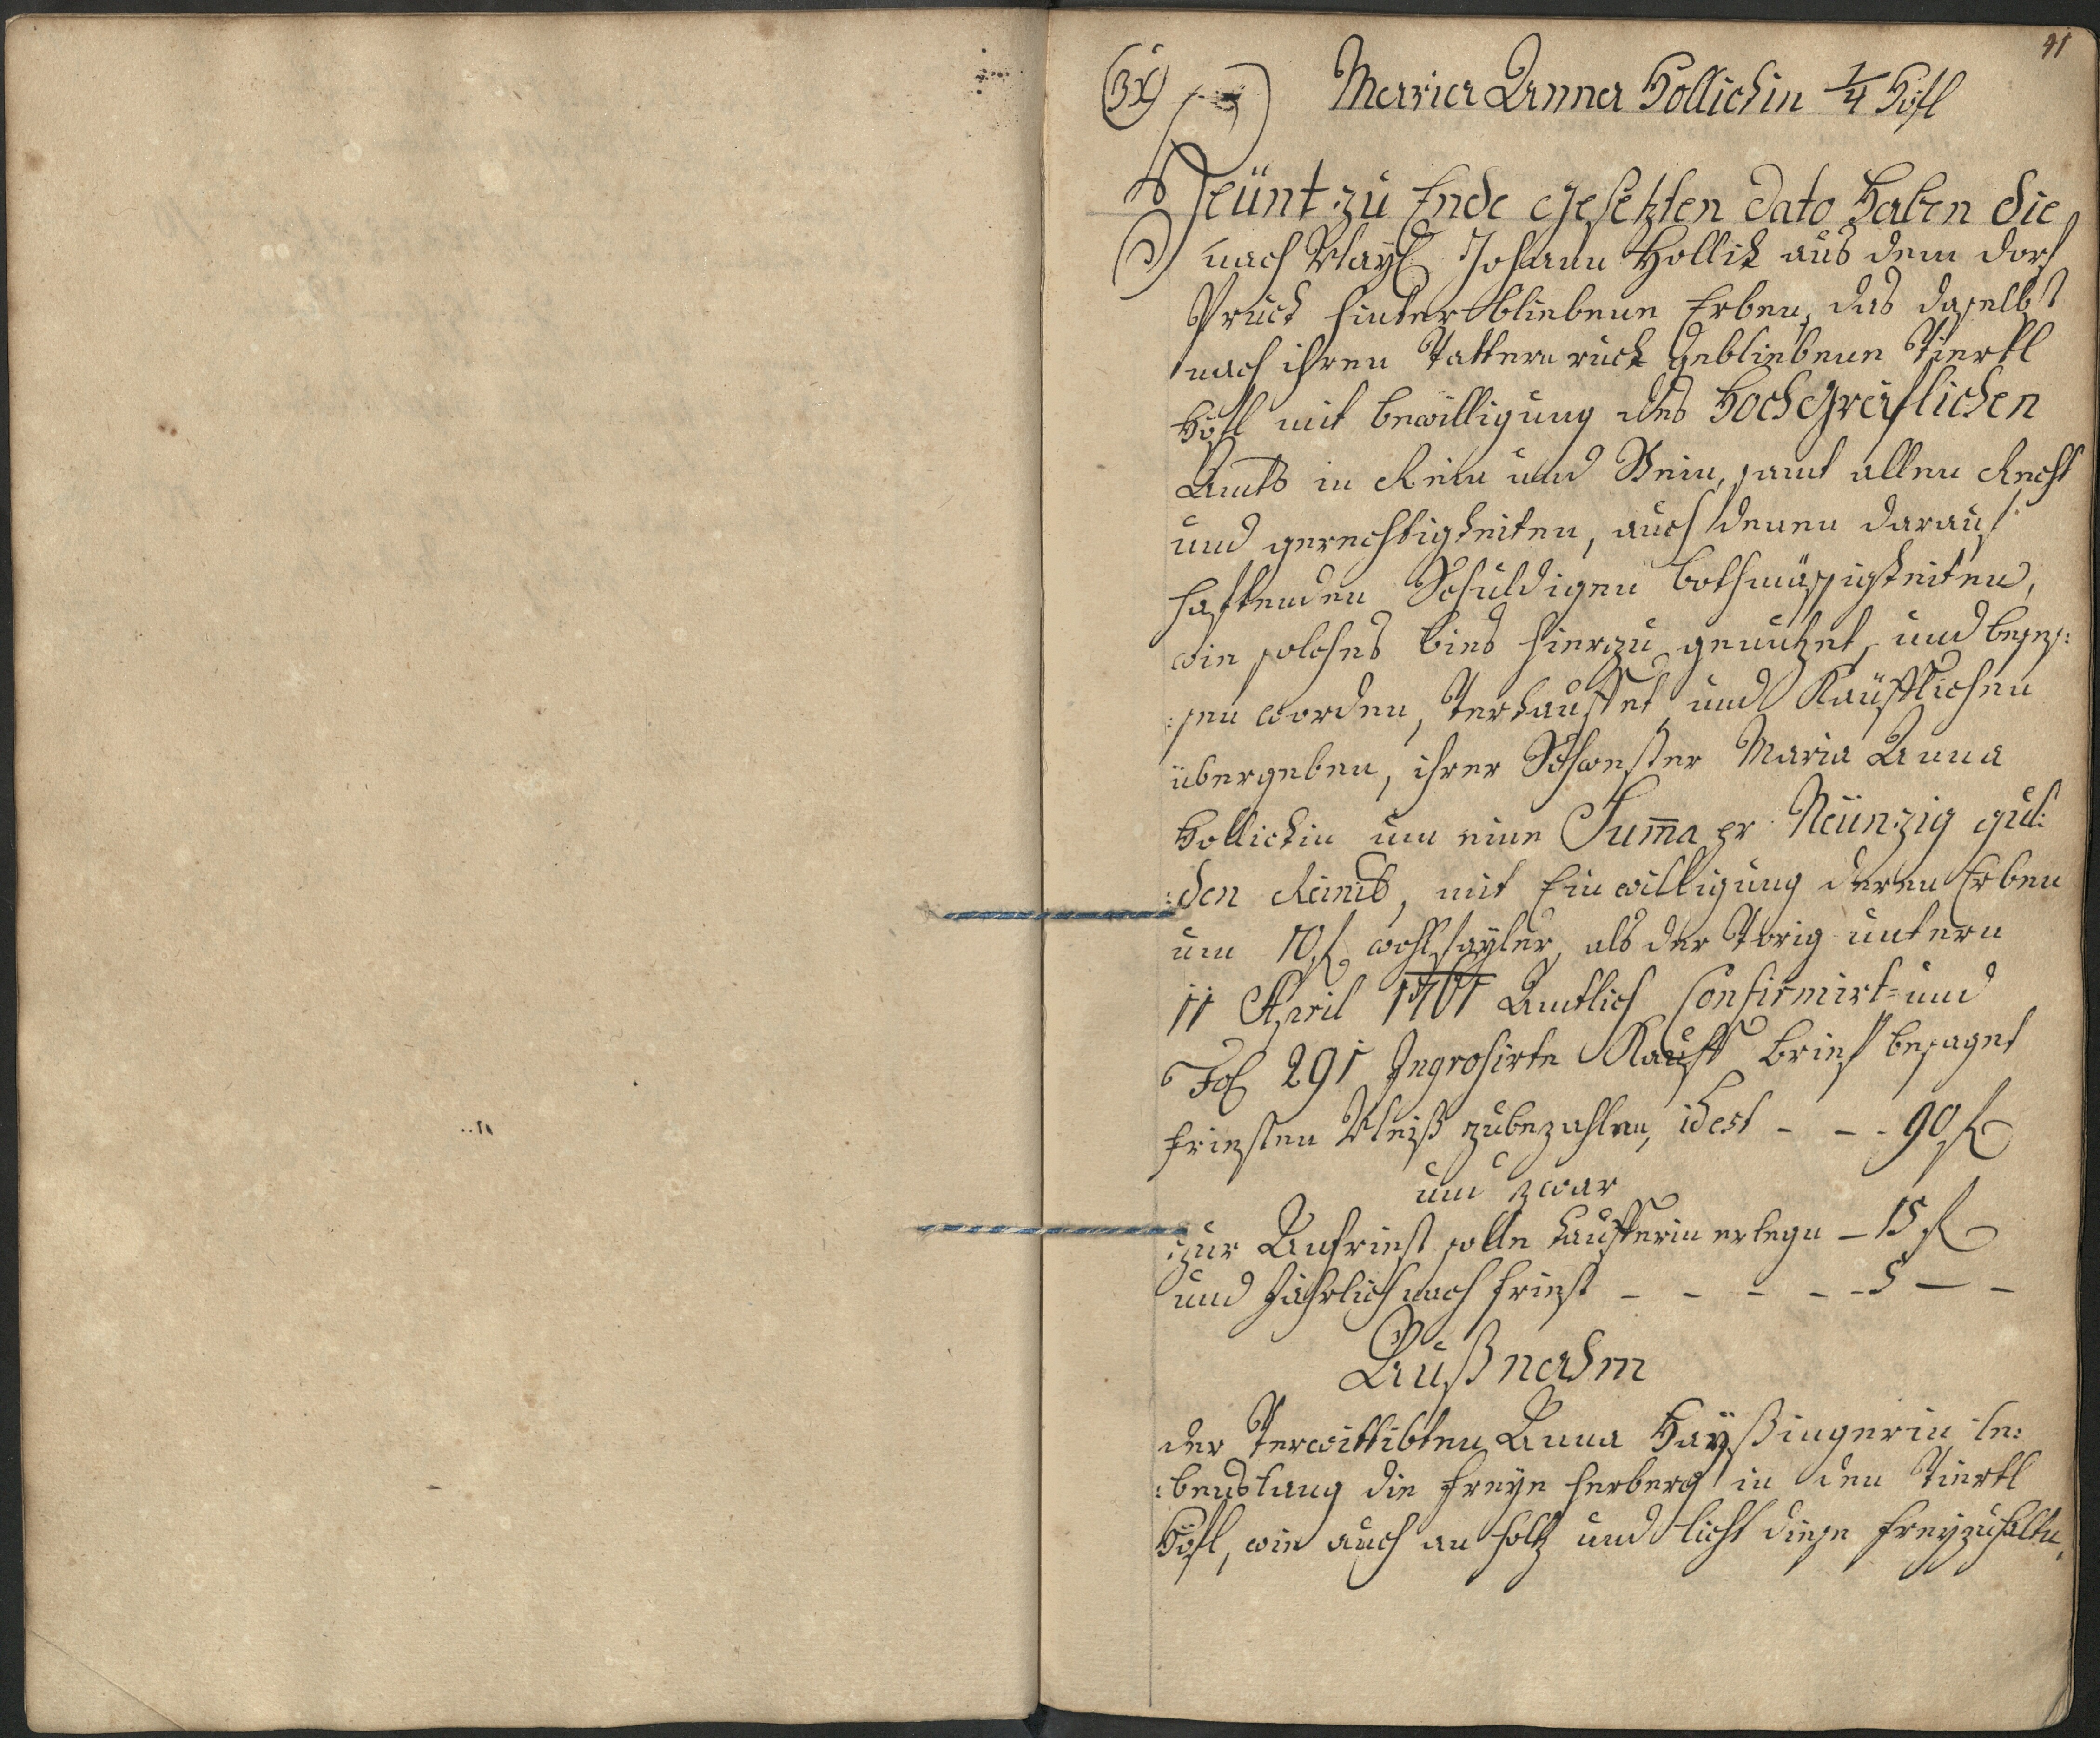 41
Maria Anna Hollichin 1/4 Höfl
Heünt zu Ende gesetzten dato haben die
nach Wayl Johann Hollik aus dem dorf
Pruck hinterbliebene Erben, das daselbst
nach ihren Vattern ruck gebliebene Viertl
Höfl mit bewilligung des Hochgräflichen
Amts in Rein und Stein, samt allen Recht
und gerechtigkeiten, auch denen darauf
haftenden Schuldigen bothmässigkeiten,
wie solches bies hierzu genutzet, und beses:
:sen worden, Verkauffet, und Kaüfflichen
übergeben, ihrer Schwester Maria Anna
Hollichin um eine Suma pr Neünzig gul:
:den Reinis, mit Einwilligung deren Erben
um 10 f wohlfayler, als der Vorig untern
11 April 1761 Amtlich Confirmirt- und
Fol 291 Ingrosirte Kauff brief besaget
friesten Weiß zubezahlen, idest - - - 90 f
und zwar
zur Anfriest solle Kaufferin erlegn - 15 f
und Jährlich nach friest - - - - - 5 - -
Außnahm
der Verwittibten Anna Hayßingerin le:
:benslang die freye herberg in den Viertl
Höfl, wie auch an holtz und licht diese freyzuhaltn,